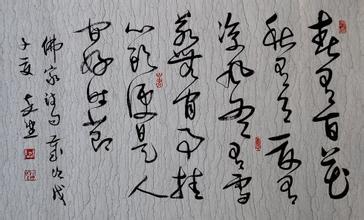 春有百花
秋有月夏有
凉风冬有雪
若無闲事挂
心头便是人
间好时节
佛家诗句 岁次戊
子夏